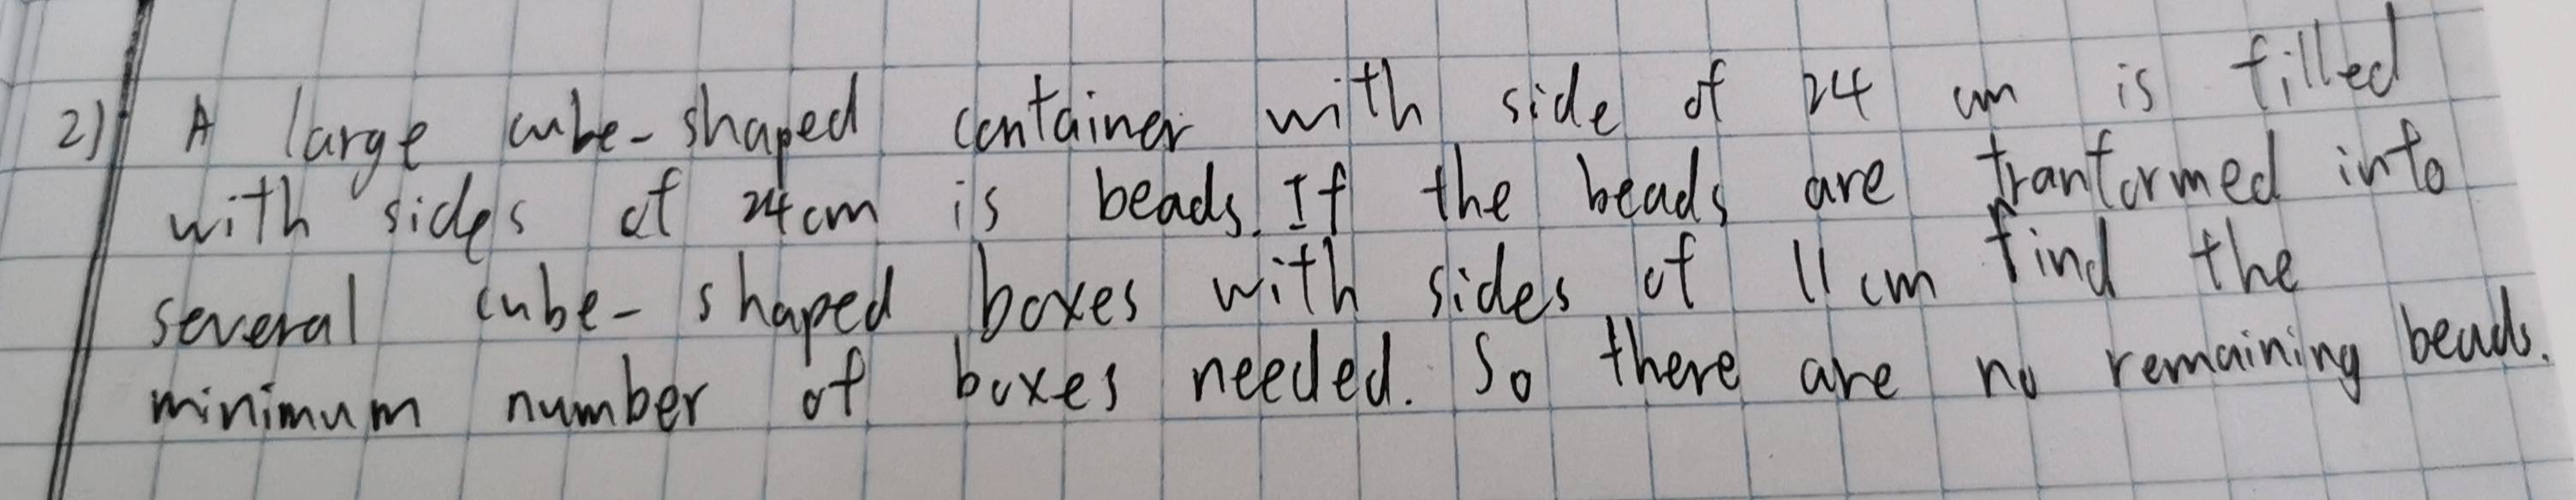 2) A large cube-shaped container with side of 24 cm is filled
with sides of 24cm is beads. If the beads are tranformed into
several cube-shaped boxes with sides of 11 cm find the
minimum number of boxes needed. So there are no remaining beads.